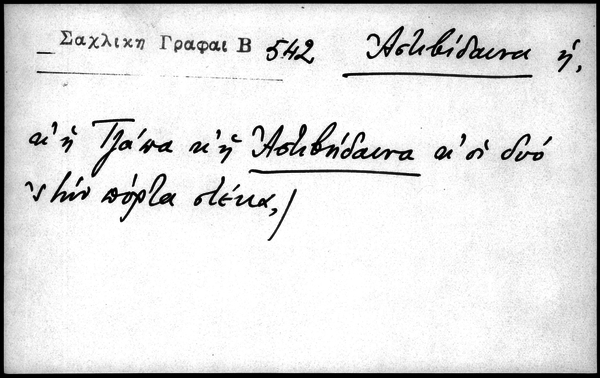 Σαχλικη Γραφαι Β 542 Ἀστιβίδαινα ἡ,
κ' ἡ Τζάπα κ' ἡ Ἀστιβήδαινα κ' οἱ δυό
'ς τὴν πόρτα στέκα,/